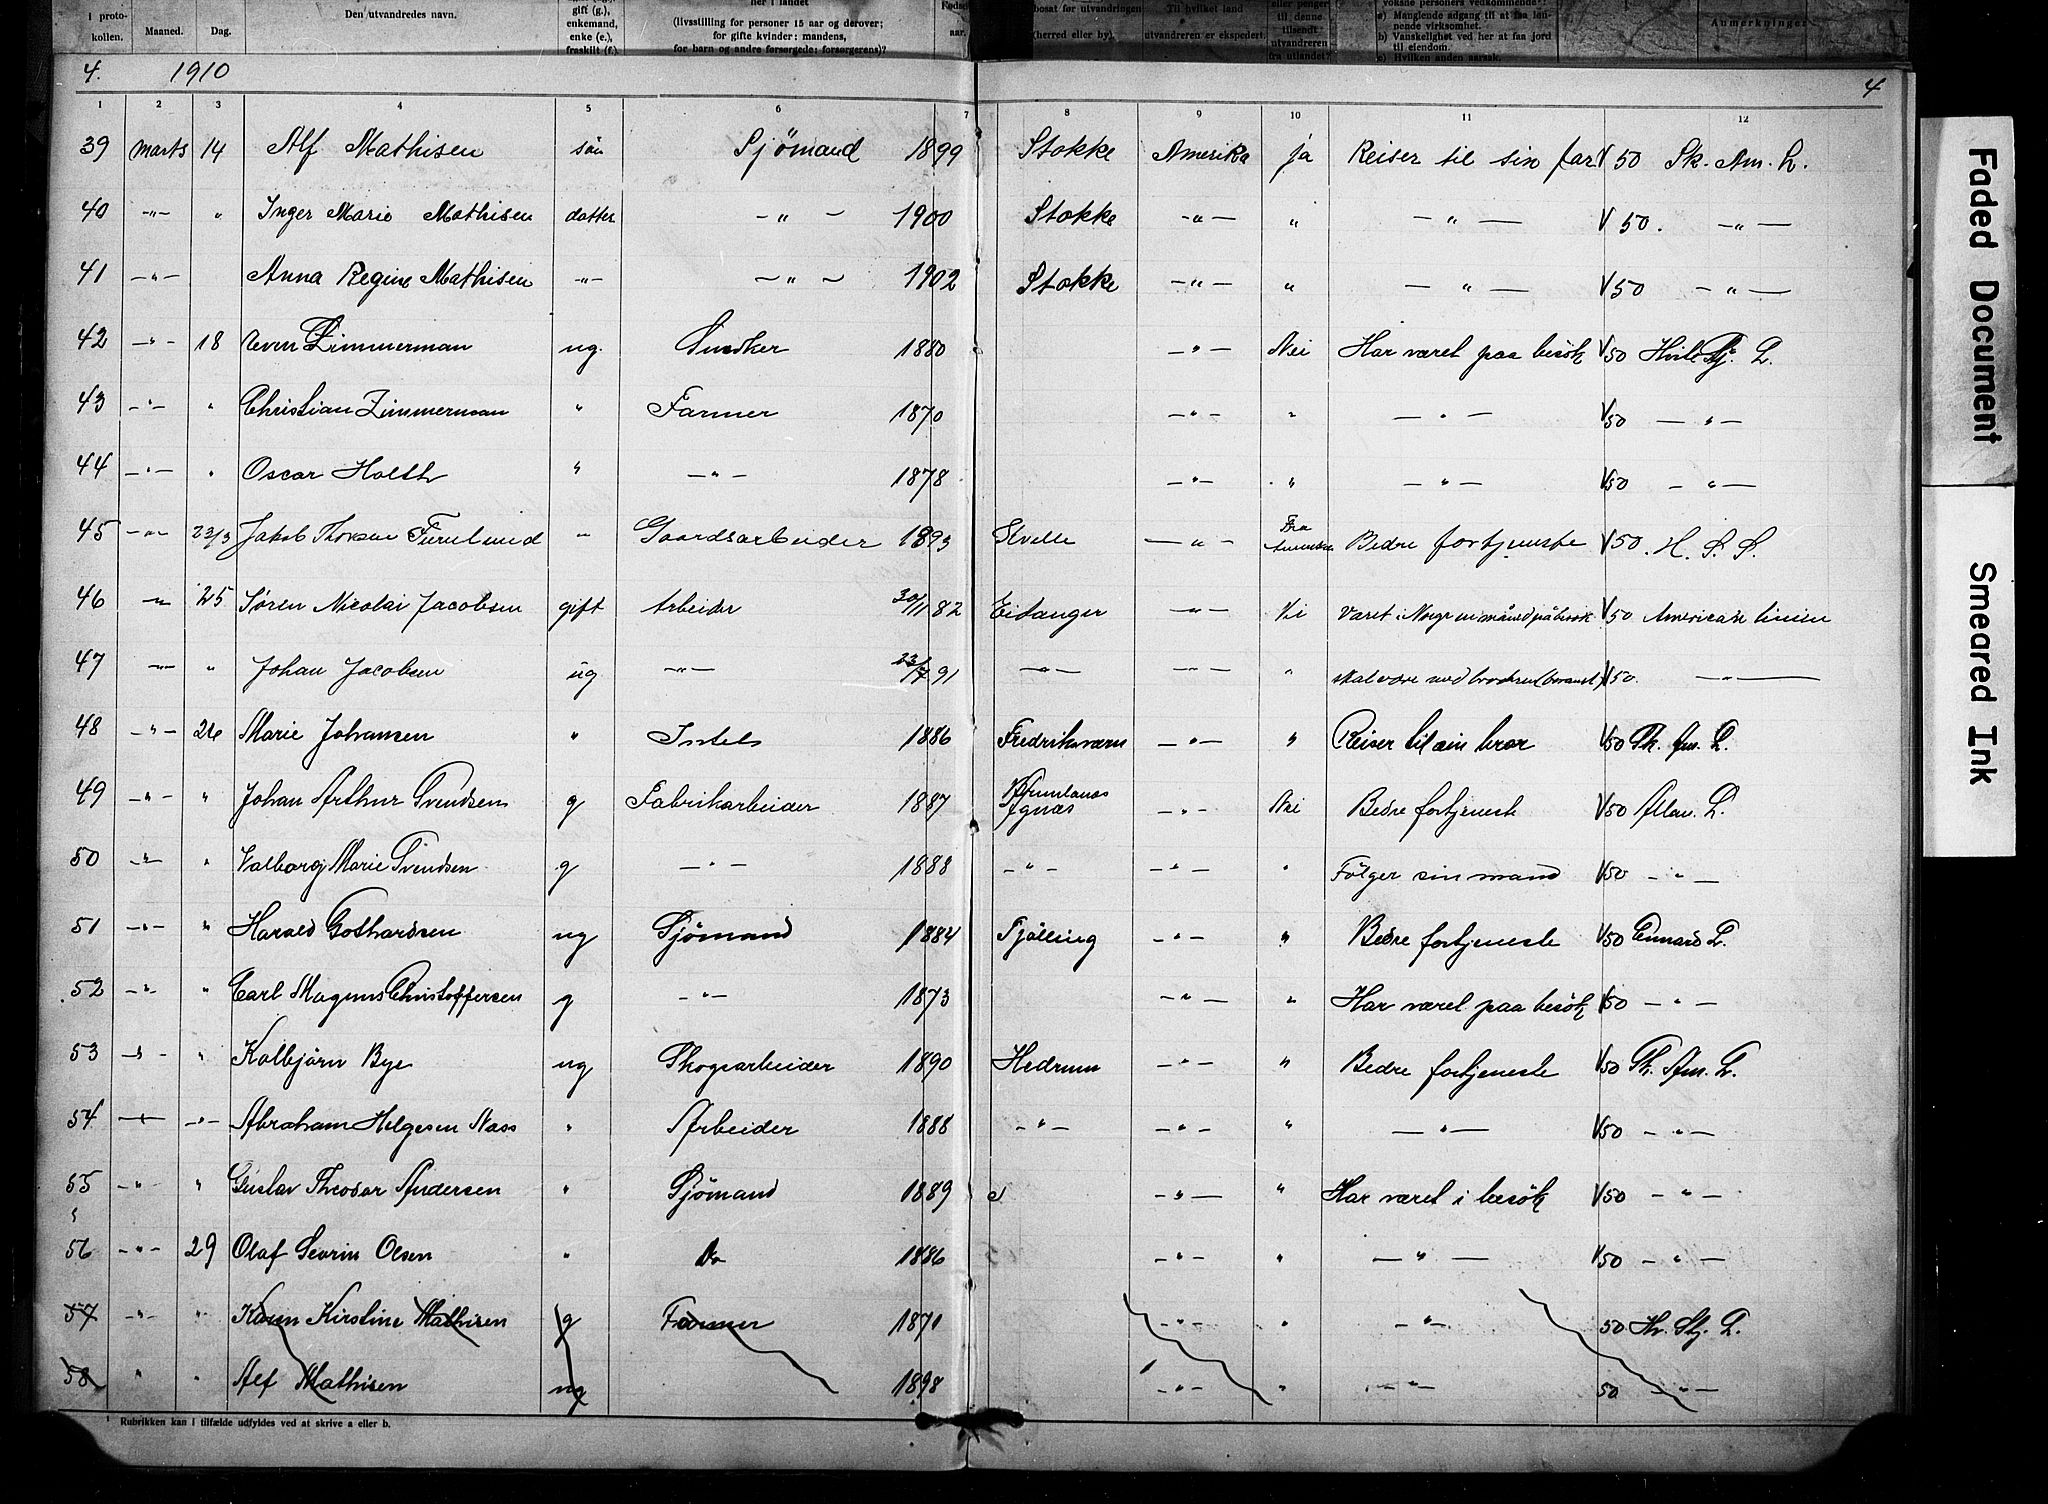 i proto-
kollen.
Maaned.
Dag.
Den utvandredes navn.
gift (g.),
enkemand,
enke (e.),
fraskilt (f.)
her i landet
(livsstilling for personer 15 aar og derover;
for gifte kvinder: mandens,
for barn og andre forsørgede: forsørgerens)?
aar.
bosat før utvandringen
(herred eller by).
Til hvilket land
utvandreren er ekspedert.
eller penger
til denne
tilsendt
utvandreren
fra utlandet?
a) Manglende adgang til at faa løn-
nende virksomhet.
b) Vanskelighet ved her at faa jord
til eiendom.
c) Hvilken anden aarsak.
Anmerkninger
4. 1910 4
1 2 3 4 5 6 7 8 9 10 11 12
39 Marts 14 Alf Mathisen søn Sjømand 1899 Stokke Amerika ja Reiser til sin far V 50 Sk. Am. L.
40 -"- " Inger Marie Mathisen datter -"- 1900 Stokke -"- " -"- V 50. -"-
41 -"- Anna Regine Mathisen -"- -"- 1902 Stokke -"- " -"- V 50 -"-
42 -"- 18 Even Zimmerman ug. Snedker 1880 -"- Nei Har været paa besøk V 50 Hvite Stj. L.
43 -"- " Christian Zimmerman " Farmer 1870 -"- " -"- V 50 -"-
44 -"- " Oscar Holth " -"- 1878 -"- " -"- V 50 -"-
45 -"- 23/3 Jakob Furulund " Gaardsarbeider 1893 -"- Fra Amerika Bedre fortjeneste V 50. H. S. S.
46 -"- 25 Søren Nicolai Jacobsen gift Arbeider 30/11 82 Eidanger -"- Nei Været i Norge en måned på besøk V 50 American linien
47 -"- " Johan Jacobsen ug -"- 23/7 91 -"- -"- " skal være med broderen V 50. -"-
48 -"- 26 Marie Johansen " Intet 1886 Fredriksværn -"- " Reiser til sin bror V 50 Sk. Am. L.
49 -"- " Johan Arthur Svendsen g Fabrikarbeider 1887 Brunlanes Agnæs -"- Nei Bedre fortjeneste V 50 Allan. L.
50 -"- " Valborg Marie Svendsen g -"- 1888 -"- -"- " Følger sin mand V 50 -"-
51 -"- " Harald Gothardsen ug Sjømand 1884 Tjølling -"- " Bedre fortjeneste V 50 Cunard L.
52 -"- " Carl Magnus Christoffersen g -"- 1873 -"- " Har været paa besøk V 50 -"-
53 -"- " Kolbjørn Bye ug Skogsarbeider 1890 Hedrum -"- " Bedre fortjeneste V 50 Sk. Am. L.
54 -"- -"- Abraham Helgesen Næss " Arbeider 1888 -"- -"- " -"- V 50 -"-
55 -"- " Gustav Theodor Andersen " Sjømand 1889 -"- " Har været i besøk V 50 -"-
56 -"- 29 Olaf Sevrin Olsen " Do 1886 -"- " -"- V 50 -"-
57 -"- " Karen Kirstine Mathisen g Farmer 1871 -"- " -"- 50 Hv. Stj. L.
58 " " Alf Mathisen ug 1898 -"- " -"- 50 -"-
¹ Rubrikken kan i tilfælde utfyldes ved at skrive a eller b.
Faded Document
Smeared Ink